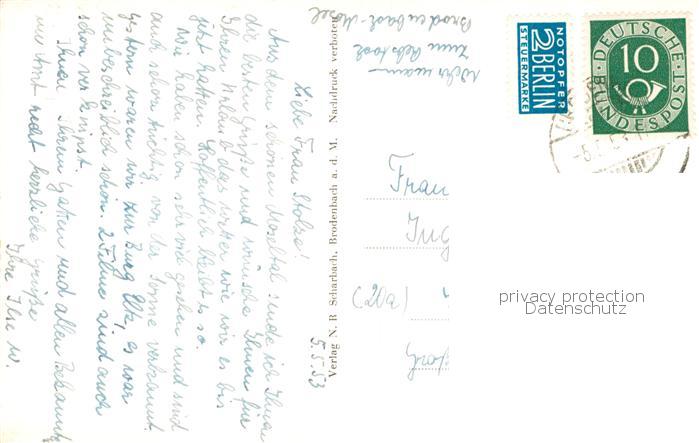 5.5.53
Liebe Frau Stolze!
Aus dem schönen Moseltal sende ich Ihnen
die besten Grüße und wünsche Ihnen für
Ihren Urlaub das Wetter wie wir es bis
jetzt hatten. Hoffentlich bleibt es so.
Wir haben schon sehr viel gesehen und sind
auch schon tüchtig von der Sonne verbrannt.
Gestern waren wir zur Burg Eltz, es war
unbeschreiblich schön. 2 Filme sind auch
schon verknipst.
Ihnen Ihrem Gatten und allen Bekannten
im Amt recht herzliche Grüße
Ihre Ilse W.
Verlag N. B. Scharbach, Brodenbach a. d. M. Nachdruck verboten
Zum Rebstock
Brodenbach-Mosel
NOTOPFER
2 BERLIN
STEUERMARKE
DEUTSCHE
10
BUNDESPOST
Frau
Ing
(20a)
privacy protection
Datenschutz